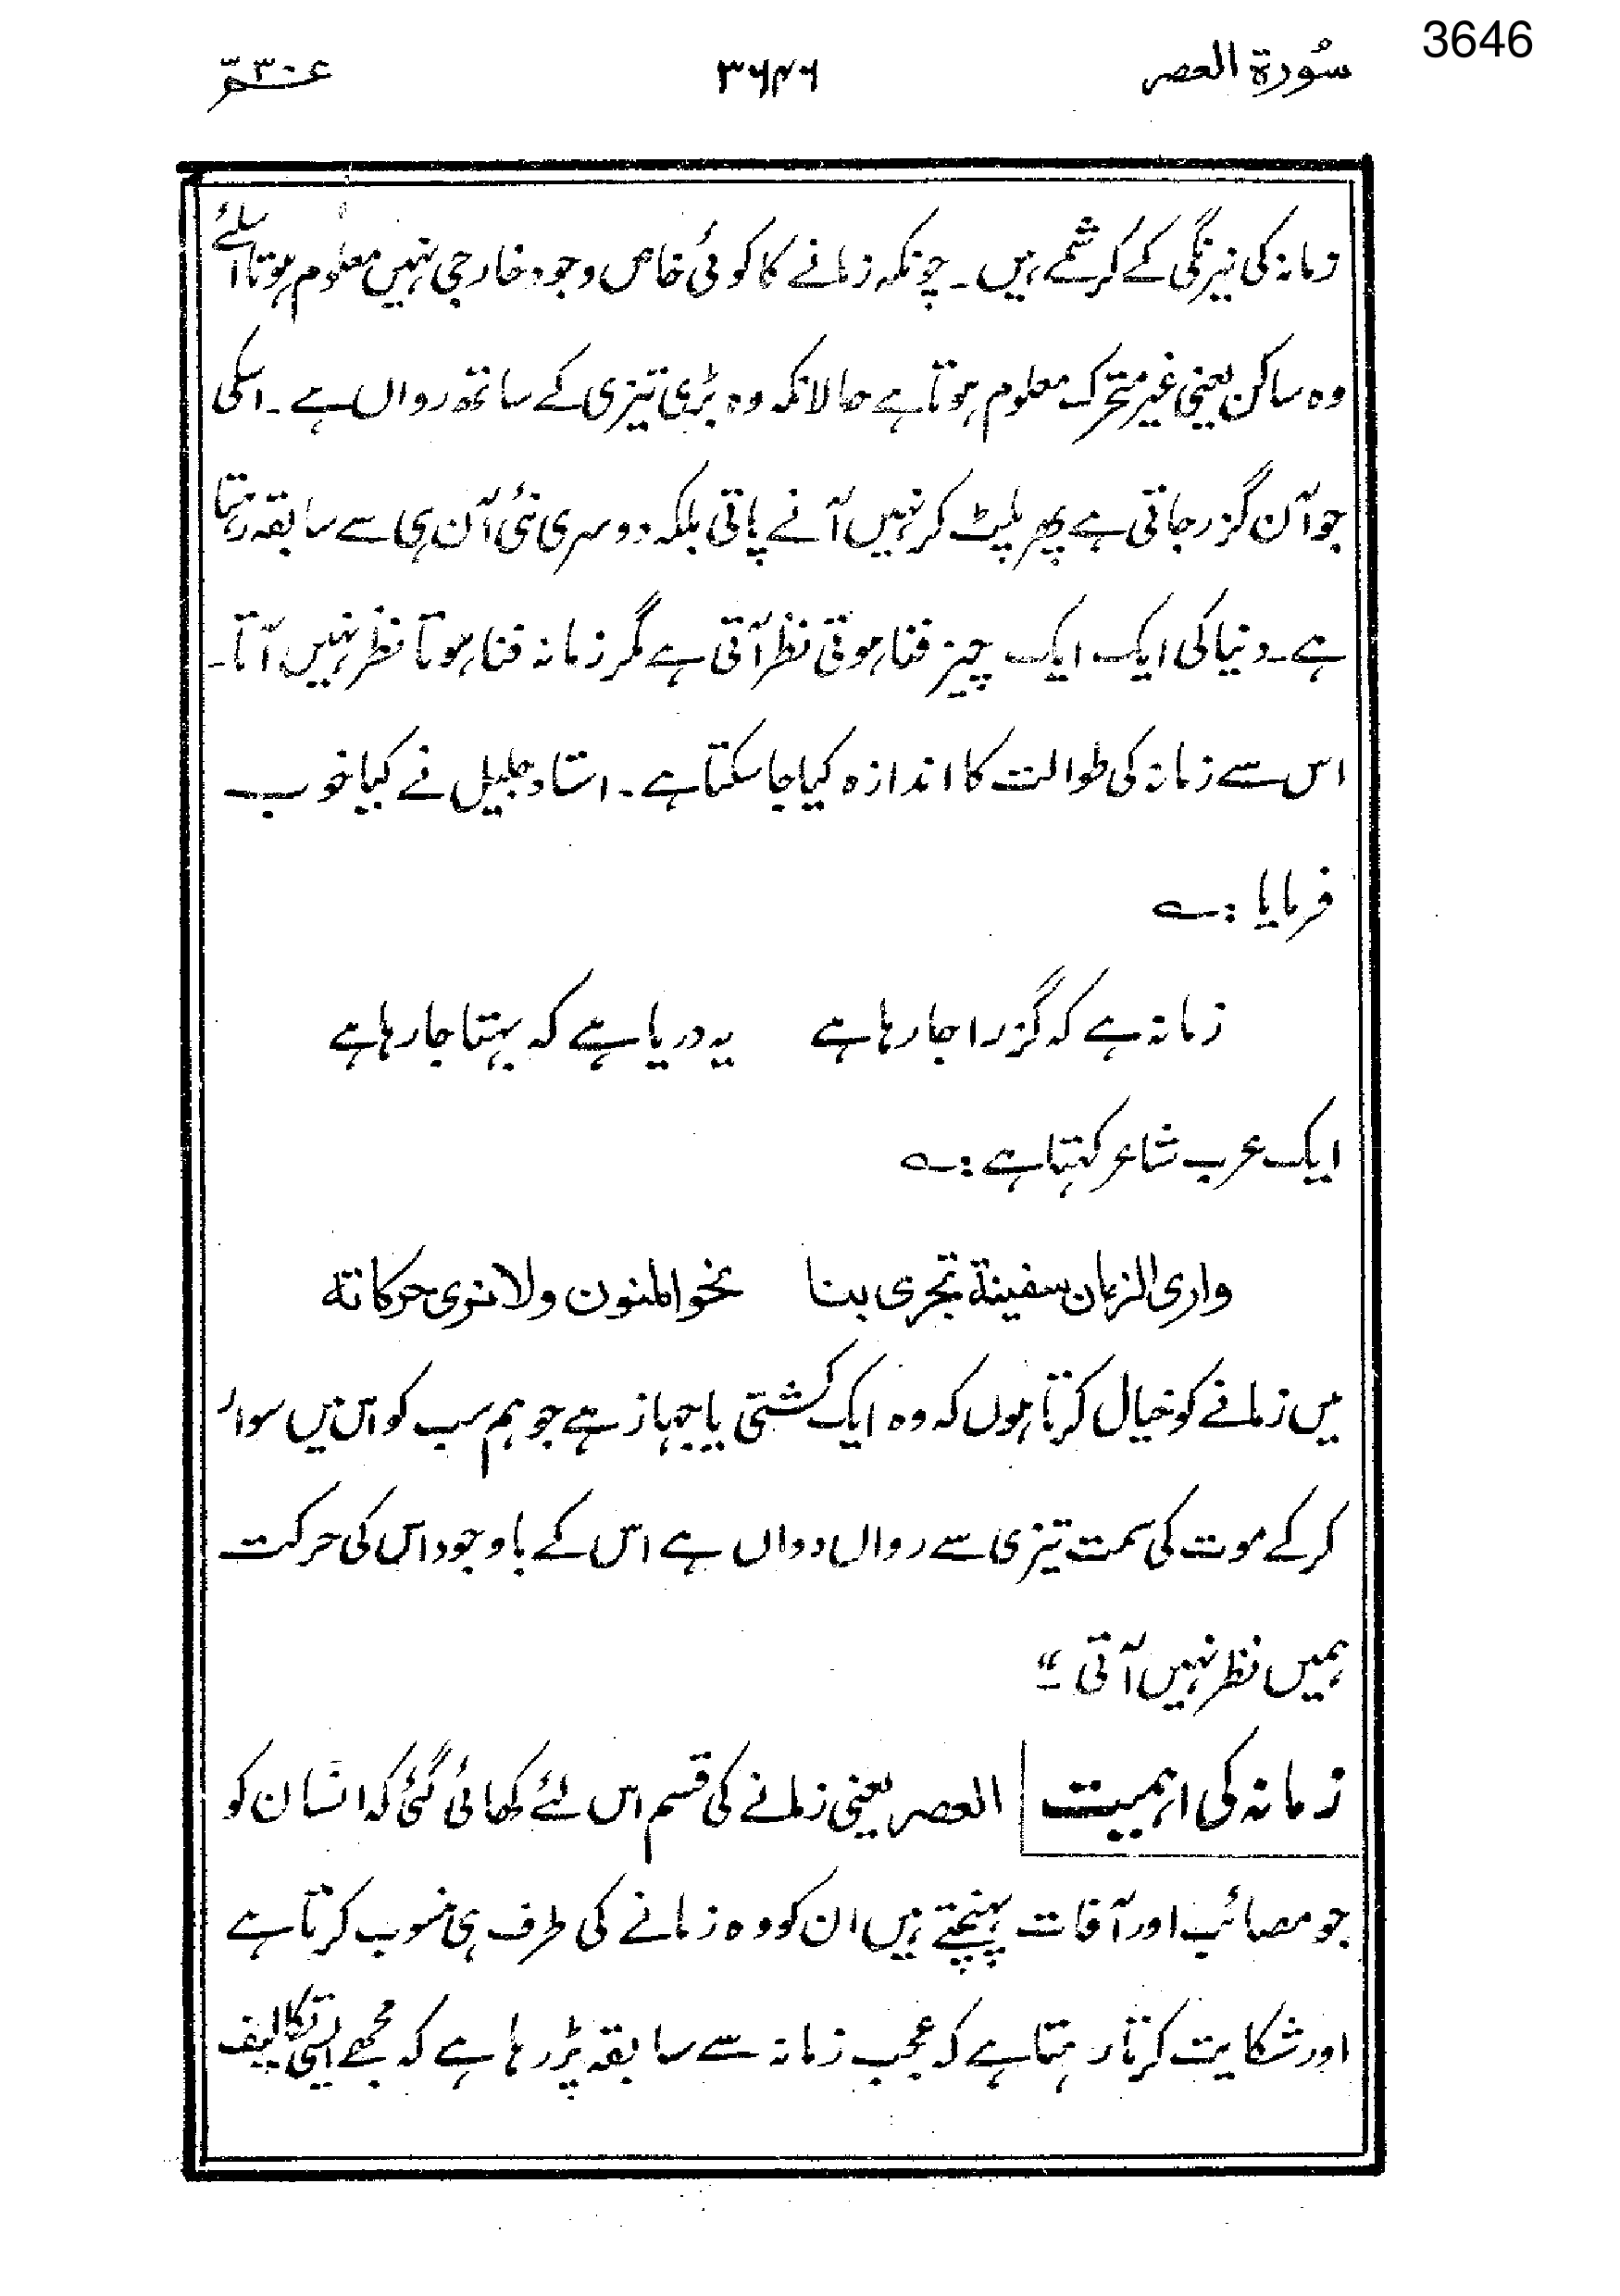 3646
سُورة العصر ۳۶۴۶ عمّ ۳۰
زمانہ کی نیرنگی کے کرشمے ہیں۔ چونکہ زمانے کا کوئی خاص وجود خارجی نہیں معلوم ہوتا اسلئے
وہ ساکن یعنی غیر متحرک معلوم ہوتا ہے حالانکہ وہ بڑی تیزی کے ساتھ رواں ہے۔ اسکی
جو آن گزر جاتی ہے پھر پلٹ کر نہیں آنے پاتی بلکہ دوسری نئی آن ہی سے سابقہ رہتا
ہے۔ دنیا کی ایک ایک چیز فنا ہوتی نظر آتی ہے مگر زمانہ فنا ہوتا نظر نہیں آتا۔
اس سے زمانہ کی طوالت کا اندازہ کیا جا سکتا ہے۔ استاد جلیل نے کیا خوب
فرمایا :ـ؎
زمانہ ہے کہ گزرا جا رہا ہے یہ دریا ہے کہ بہتا جا رہا ہے
ایک عرب شاعر کہتا ہے :ـ؎
واری الزمان سفینة تجری بنا نحو المنون ولا نری حرکاته
میں زمانے کو خیال کرتا ہوں کہ وہ ایک کشتی یا جہاز ہے جو ہم سب کو اس میں سوار
کر کے موت کی سمت تیزی سے رواں دواں ہے اس کے باوجود اس کی حرکت
ہمیں نظر نہیں آتی ۔“
زمانہ کی اہمیت العصر یعنی زمانے کی قسم اس لئے کھائی گئی کہ انسان کو
جو مصائب اور آفات پہنچتے ہیں ان کو وہ زمانے کی طرف ہی منسوب کرتا ہے
اور شکایت کرتا رہتا ہے کہ عجب زمانہ سے سابقہ پڑ رہا ہے کہ مجھے ایسی تکالیف